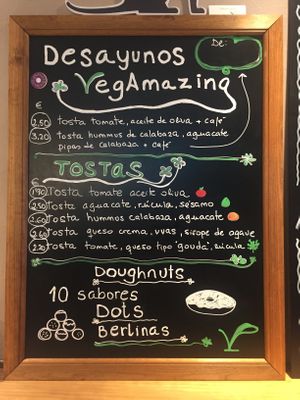 Desayunos
De:
VegAmazing
€
2,50 tosta tomate, aceite de oliva + café
3,20 tosta hummus de calabaza, aguacate
pipas de calabaza + café
TOSTAS
€
1,90 Tosta tomate aceite oliva
2,50 Tosta aguacate, rúcula, sésamo
2,60 Tosta hummus calabaza, aguacate
2,60 Tosta queso crema, uvas, sirope de agave
2,20 Tosta tomate, queso tipo "gouda", rúcula
Doughnuts
10 sabores
Dots
Berlinas